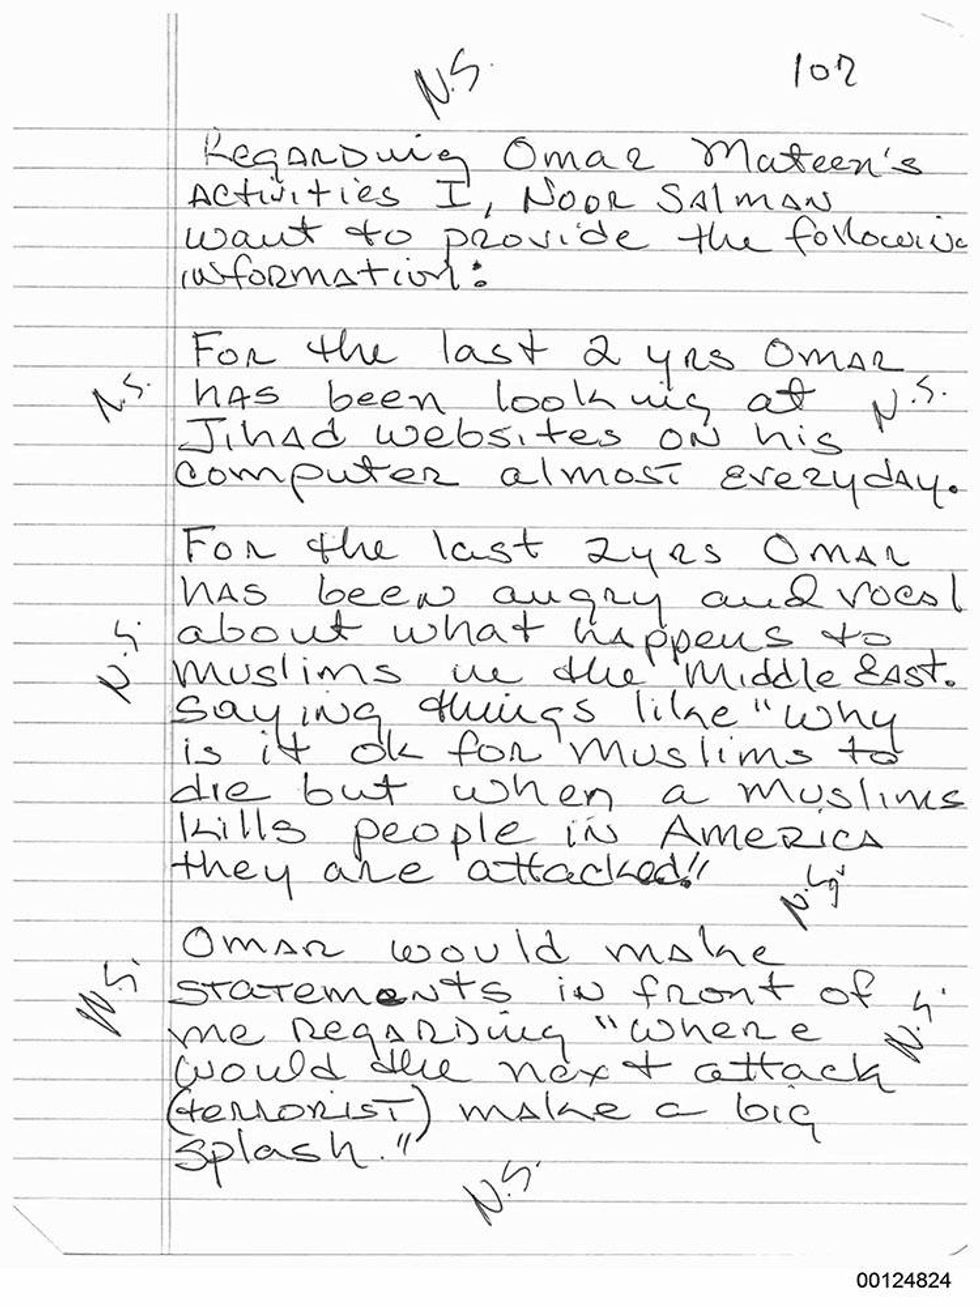 N.S.
1 of 2
Regarding Omar Mateen's
Activities I, Noor Salman
want to provide the following
information:
For the last 2 yrs Omar
N.S.
has been looking at
N.S.
Jihad websites on his
computer almost everyday.
For the last 2 yrs Omar
has been angry and vocal
N.S.
about what happens to
muslims in the Middle East.
Saying things like "why
is it ok for muslims to
die but when a muslims
kills people in America
they are attacked!"
N.S.
Omar would make
N.S.
statements in front of
N.S.
me regarding "where
would the next attack
(terrorist) make a big
splash."
N.S.
00124824